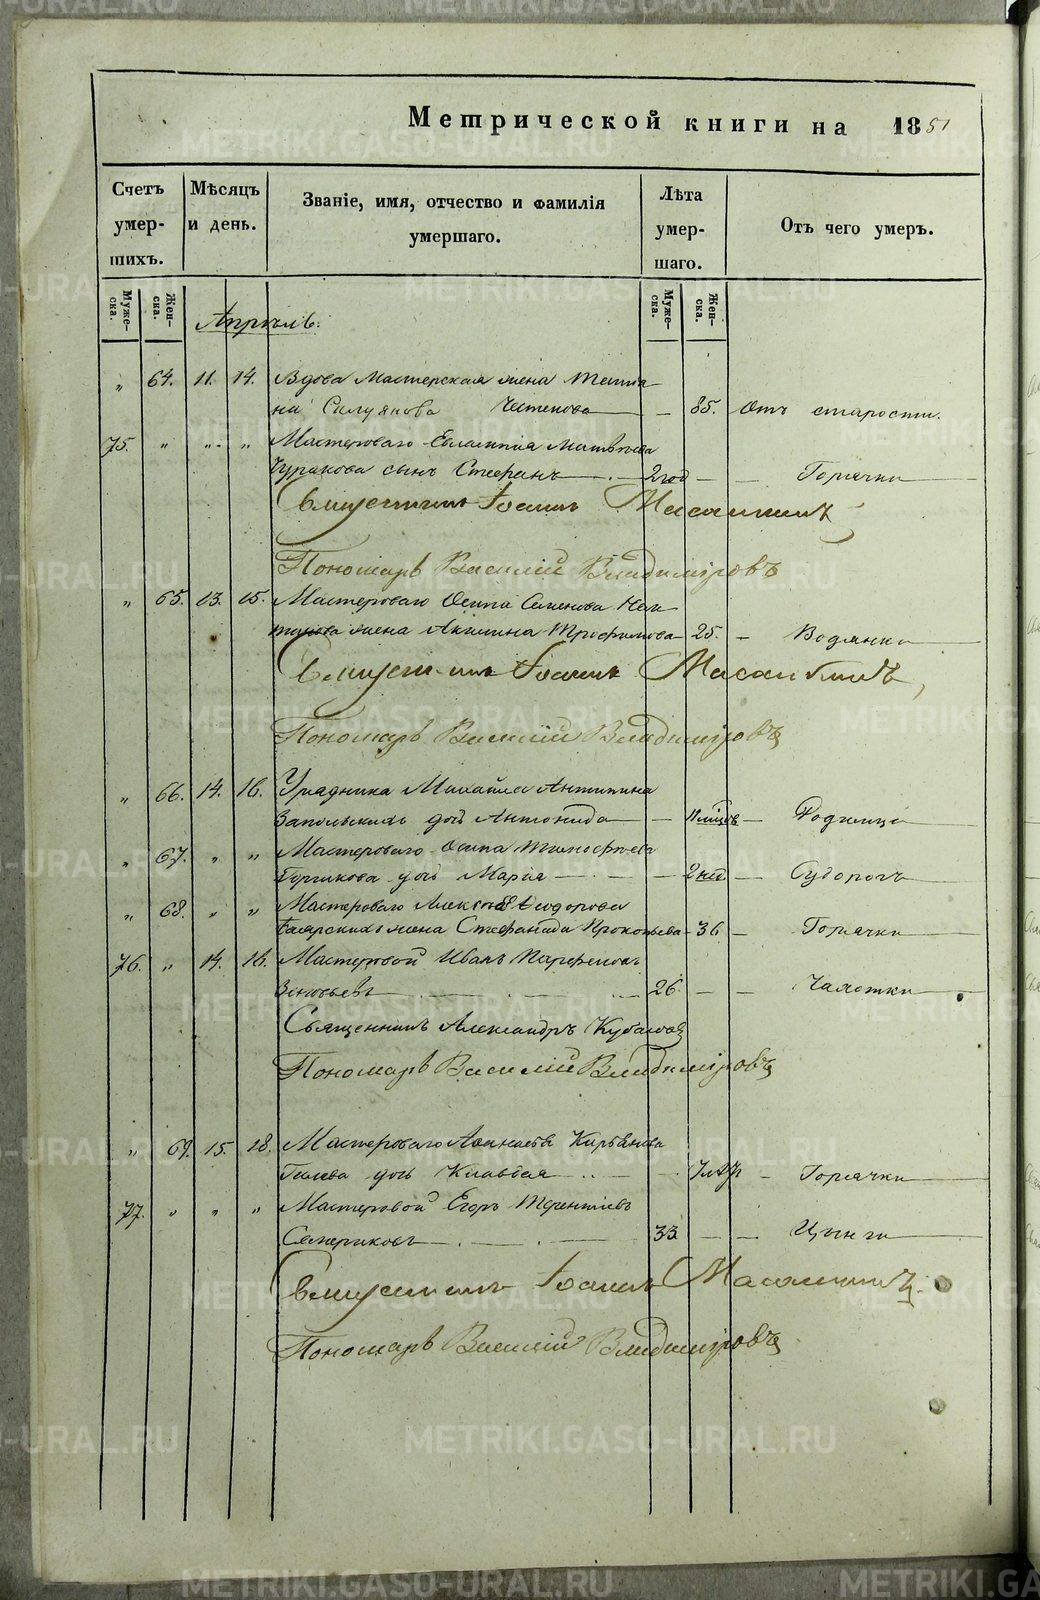 Метрической книги на 1851
Счетъ умершихъ.
Мѣсяцъ и день.
Званіе, имя, отчество и фамилія умершаго.
Лѣта умершаго.
Отъ чего умеръ.
Мужеска.
Женска.
Мужеска.
Женска.
Апрѣль:
„ 64. 11. 14. Вдова Мастерская жена Татіа-
на Силуянова — 85. Отъ старости.
75. „ „ „ Мастероваго Евлампія Матвѣева
сынъ Стефанъ — 2 год — — Горячки
Священникъ Іоаннъ
Пономарь Василій Владиміровъ
„ 65. 13. 15. Мастероваго Осипа Семенова
жена Акилина Трофимова — 25. — Водянки
Священникъ Іоаннъ
Пономарь Василій Владиміровъ
„ 66. 14. 16. Урядника Михайла Антипина
дочь Антонида — — Родимца
„ 67. „ „ Мастероваго Осипа Тимофѣева
дочь Марія — 2 нед — Судорогъ
„ 68. „ „ Мастероваго Ѳеодорова
жена Стефанида Прокопьева — 36 — Горячки
76. „ 14. 16. Мастеровой Иванъ Парфеновъ
Зеновьевъ — 26. — — Чахотки
Священникъ Александръ
Пономарь Василій Владиміровъ
„ 69. 15. 18. Мастероваго
дочь Клавдія — — Горячки
77. „ „ „ Мастеровой Егоръ Терентіевъ
Семериковъ — 33. — — Цынги
Священникъ Іоаннъ
Пономарь Василій Владиміровъ
METRIKI.GASO-URAL.RU